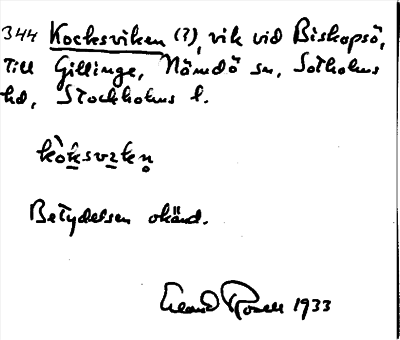 344 Kocksviken (?), vik vid Biskopsö,
till Gillinge, Nämdö sn, Sotholms
hd, Stockholms l.
kòksviken
Betydelsen okänd.
Erland Rosell 1933